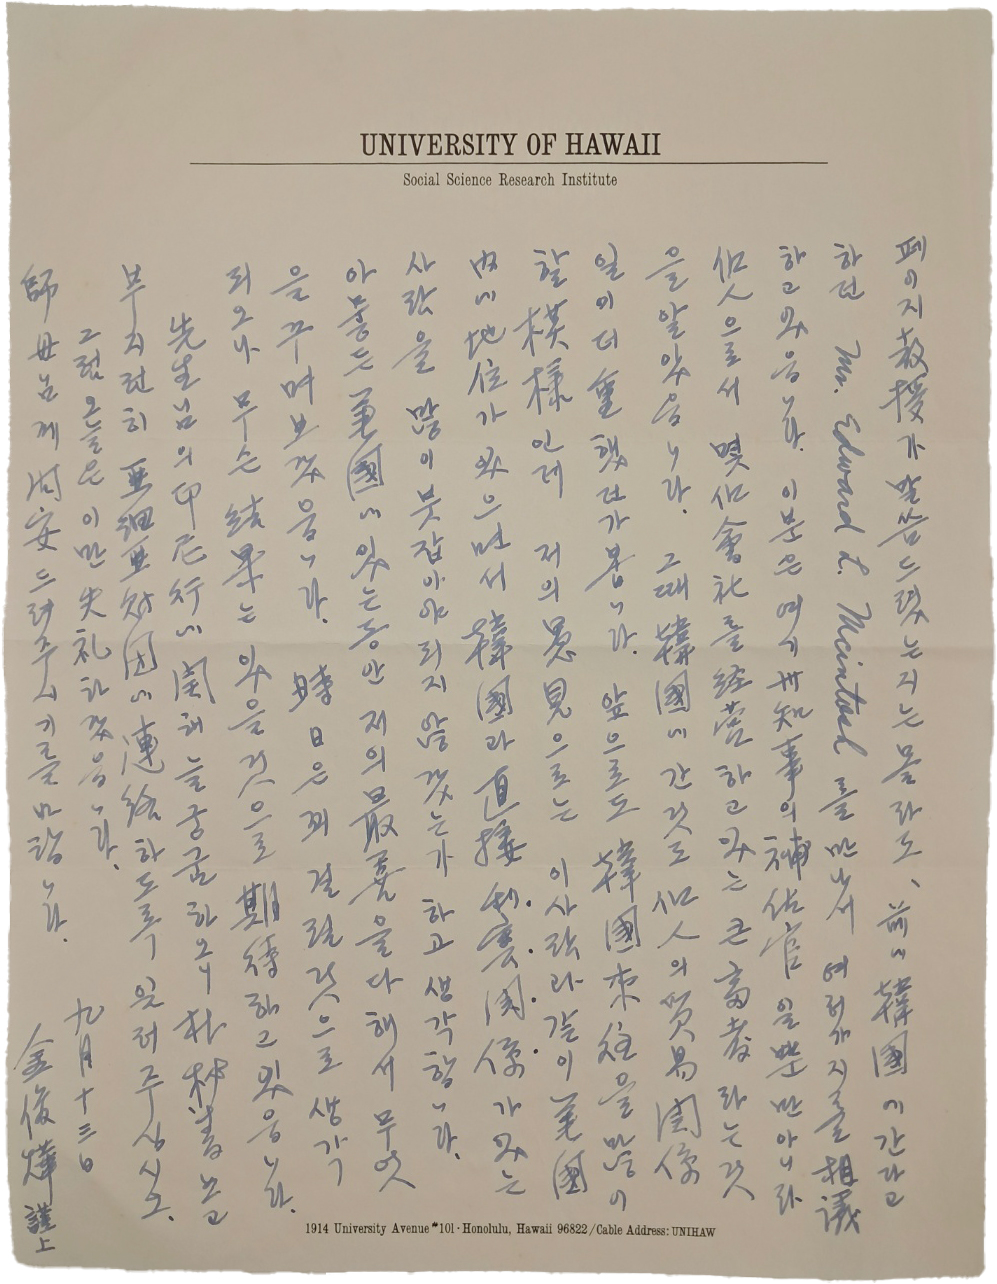 UNIVERSITY OF HAWAII
Social Science Research Institute
페이지敎授가 말씀드렸는지는 몰라도、前에 韓國에 간다고
하던 Mr. Edward L. Mcintosh를 만나서 여러가지를 相議
하고 있읍니다. 이분은 여기 州知事의 補佐官일뿐만아니라
個人으로서 몇個會社를 経営하고 있는 큰 富者라는 것
을 알았읍니다. 그때 韓國에 간것도 個人의 貿易関係
일이 더 重했던가 봅니다. 앞으로도 韓國来往을 많이
할 模樣인데 저의 愚見으로는 이사람과 같이 美國
内에 地位가 있으면서 韓國과 直接 利害関係가 있는
사람을 많이 붓잡아야 되지 않겠는가 하고 생각합니다.
아뭏든 美國에 있는동안 저의 最善을 다해서 무엇
을 꾸며보겠읍니다. 時日은 꾀 걸릴것으로 생각
되오나 무슨 結果는 있을것으로 期待하고 있읍니다.
先生님의 印尼行에 関해 늘 궁굼하오니 朴 보고
부지런히 亜細亜財団에 連絡하도록 일러주십시오.
그럼 오늘은 이만 失礼하겠읍니다.
師母님께 問安드려주시기를 바랍니다.
九月十三日
金俊燁 謹上
1914 University Avenue #101 · Honolulu, Hawaii 96822/Cable Address: UNIHAW